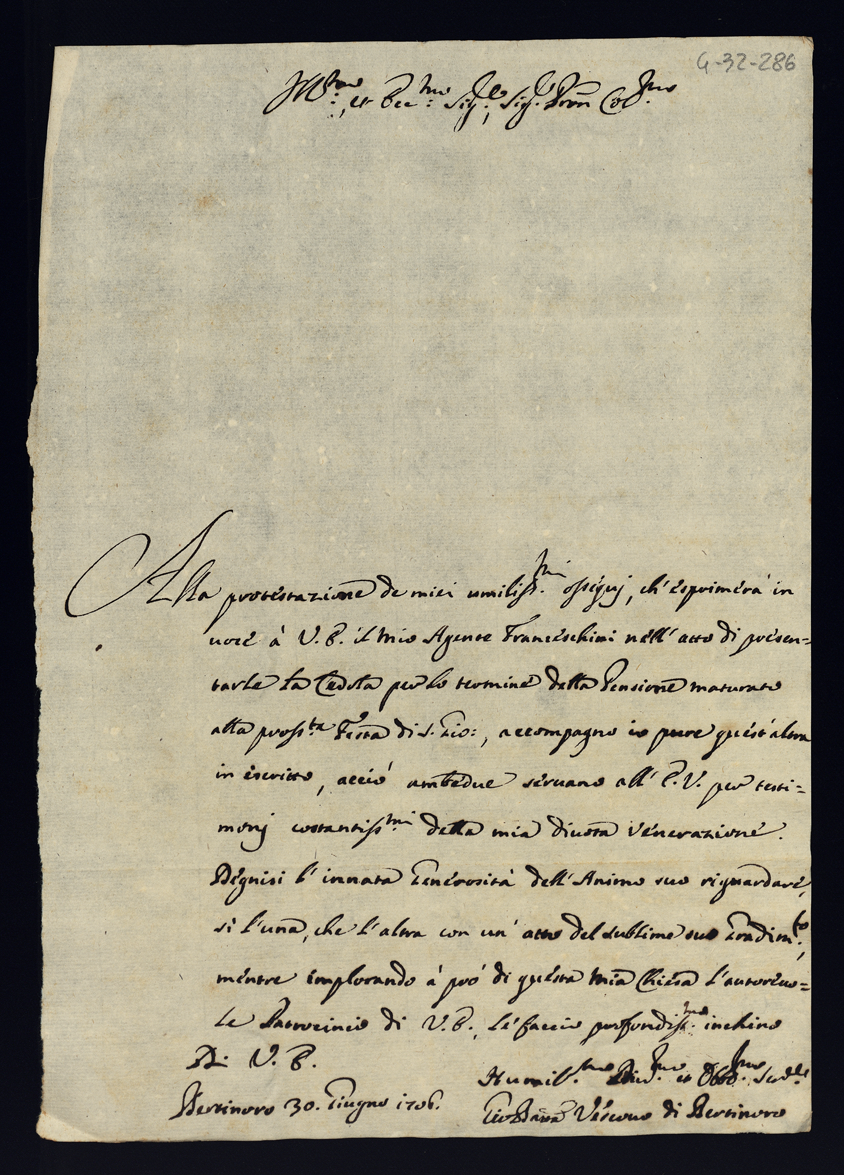 G-32-286
Ill.mo, et Ecc.mo Sig.re, Sig.r Pron Col.mo
Alla protestazione de miei umiliss.mi ossequj, ch'esprimerà in
voce à V. E. il mio Agente Franceschini nell'atto di presen=
tarle la Cedola per lo termine della Pensione maturato
alla pross.ta Festa di S. Gio:, accompagno io pure quest'altra
in iscritto, acciò ambedue servano all'E.V. per testi=
monj costantiss.mi della mia divota venerazione.
Degnisi l'innata Generosità dell'Animo suo riguardare,
sì l'una, che l'altra con un'atto del sublime suo Gradim.to,
mentre implorando à prò di questa mia Chiesa l'autorevo=
le Patrocinio di V. E., le faccio profondiss.mo inchino
Di V. E.
Bertinoro 30. Giugno 1706.
Humil.mo Div.mo et Obb.mo Ser.re
Gio Batta Vescovo di Bertinoro